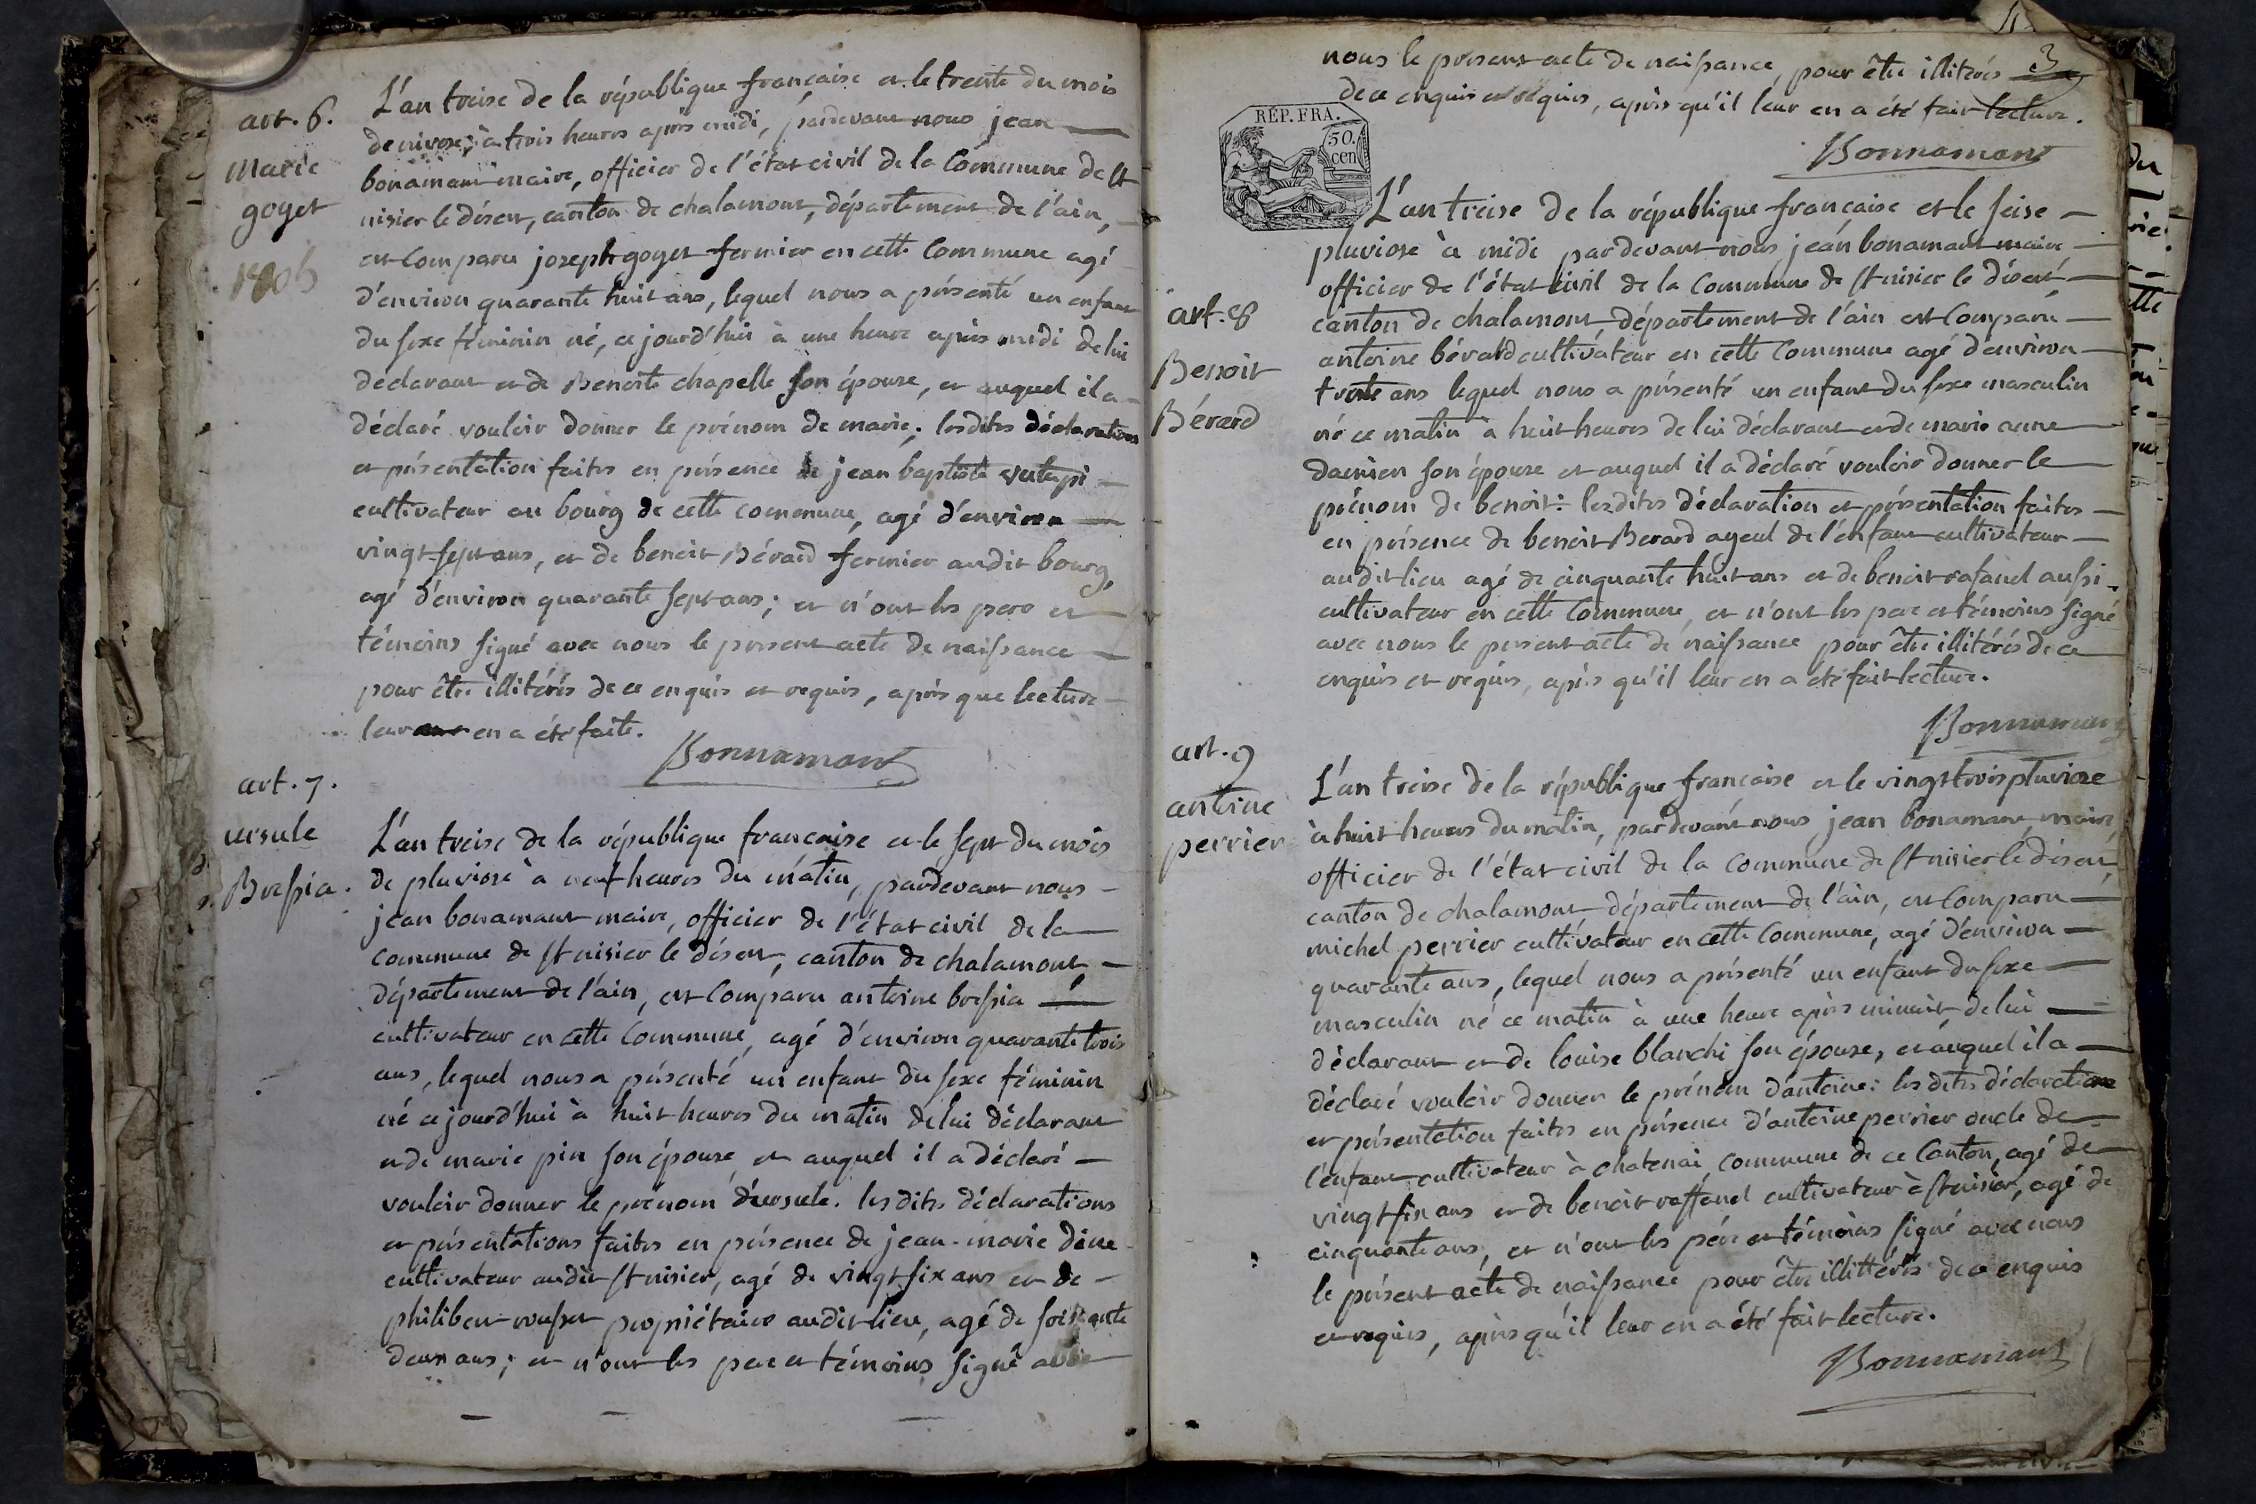 art. 6.
Marie
goyet
1805
L'an treise de la république française et le trente du mois
de nivose, à trois heures après midi, pardevant nous jean
bonamant maire, officier de l'état civil de la Commune de st
nisier le désert, canton de chalamont, département de l'ain,
est Comparu joseph goyet fermier en cette Commune agé
d'environ quarante huit ans, lequel nous a présenté un enfant
du sexe féminin né, ce jourd'hui à une heure après midi de lui
déclarant et de Benoite chapelle son épouse, et auquel il a
déclaré vouloir donner le prénom de marie; lesdites déclarations
et présentation faites en présence de jean baptiste
cultivateur au bourg de cette commune, agé d'environ
vingt sept ans, et de benoit Bérard fermier audit bourg,
agé d'environ quarante sept ans; et n'ont les pere et
témoins signé avec nous le present acte de naissance
pour être illitérés de ce enquis et requis, après que lecture
leur en a été faite.
Bonnamant
art. 7.
ursule
Bressia.
L'an treise de la république française et le sept du mois
de pluviose à neuf heures du matin, pardevant nous
jean bonamant maire, officier de l'état civil de la
commune de st nisier le désert, canton de chalamont
département de l'ain, est Comparu antoine bressia
cultivateur en cette Commune, agé d'environ quarante trois
ans, lequel nous a présenté un enfant du sexe féminin
né ce jourd'hui à huit heures du matin de lui déclarant
et de marie pin son épouse, et auquel il a déclaré
vouloir donner le prénom d'ursule. les dites déclarations
et présentations faites en présence de jean-marie
cultivateur audit st nisier, agé de vingt six ans et de
philibert rousset propriétaire audit lieu, agé de soixante
deux ans; et n'ont les pere et témoins signé avec
3
nous le present acte de naissance, pour être illitérés
de ce enquis et requis, après qu'il leur en a été fait lecture.
Bonnamant
RÉP. FRA.
50.
cen
art. 8
Benoit
Bérard
L'an treise de la république française et le seise
pluviose à midi pardevant nous jean bonamant maire
officier de l'état civil de la Commune de st nisier le désert,
canton de chalamont, département de l'ain est Comparu
antoine bérard cultivateur en cette Commune agé d'environ
trente ans lequel nous a présenté un enfant du sexe masculin
né ce matin à huit heures de lui déclarant et de marie anne
damien son épouse et auquel il a déclaré vouloir donner le
prénom de benoit: lesdites déclaration et présentation faites
en présence de benoit Berard ayeul de l'enfant cultivateur
audit lieu agé de cinquante huit ans et de benoit rafanel aussi
cultivateur en cette Commune, et n'ont les pere et témoins signé
avec nous le present acte de naissance pour être illitérés de ce
enquis et requis, après qu'il leur en a été fait lecture.
Bonnamant
art. 9
antoine
perrier
L'an treise de la république française et le vingt trois pluviose
à huit heures du matin, pardevant nous jean bonamant maire,
officier de l'état civil de la commune de st nisier le désert,
canton de chalamont département de l'ain, est Comparu
michel perrier cultivateur en cette Commune, agé d'environ
quarante ans, lequel nous a présenté un enfant du sexe
masculin né ce matin à une heure après minuit, de lui
déclarant et de louise blanchi son épouse, et auquel il a
déclaré vouloir donner le prénom d'antoine: les dites déclaration
et présentation faites en présence d'antoine perrier oncle de
l'enfant cultivateur à chatenai, commune de ce Canton, agé de
vingt six ans et de benoit raffanel cultivateur à st nisier, agé de
cinquante ans, et n'ont les pére et témoins signé avec nous
le présent acte de naissance pour être illittérés de ce enquis
et requis, après qu'il leur en a été fait lecture.
Bonnamant